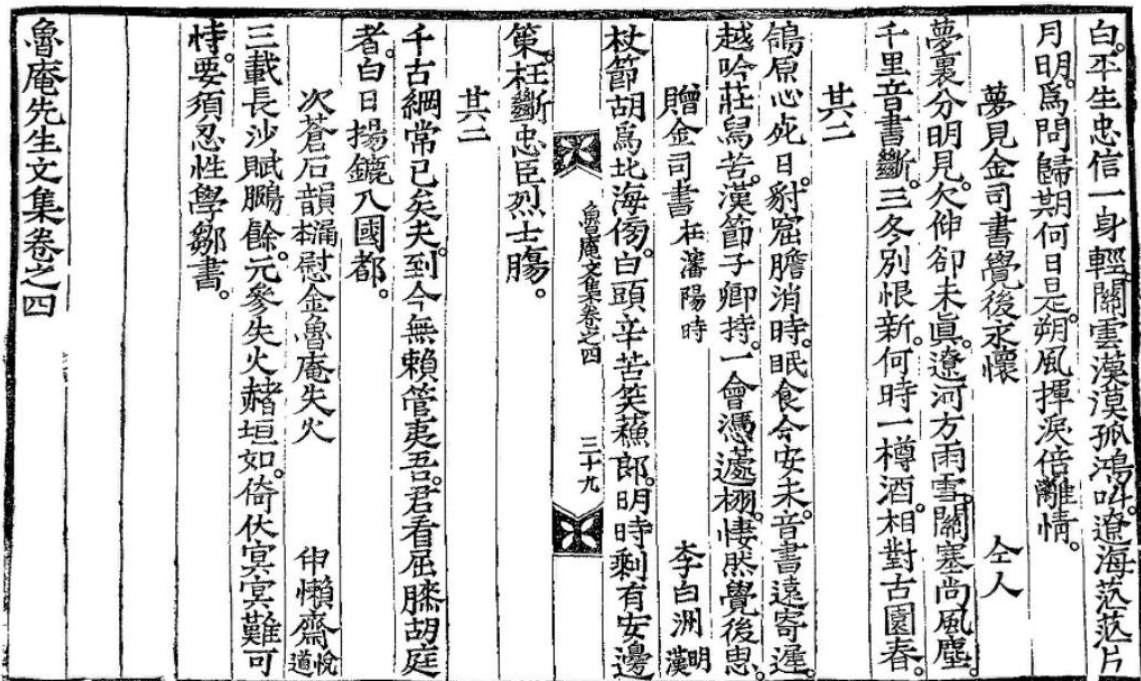 白。平生忠信一身輕。關雲漠漠孤鴻叫。遼海茫茫片
月明。爲問歸期何日是。朔風揮淚倍離情。
夢見金司書覺後永懷 仝人
夢裏分明見。欠伸卻未眞。遼河方雨雪。關塞尚風塵。
千里音書斷。三冬別恨新。何時一樽酒。相對古園春。
其二
鴒原心死日。豺窟膽消時。眠食今安未。音書遠寄遲。
越吟莊舃苦。漢節子卿持。一會憑蘧栩。悽然覺後思。
贈金司書 在瀋陽時 李白洲 明漢
杖節胡爲北海傍。白頭辛苦笑蘓郞。明時剩有安邊
魯庵文集卷之四 三十九
策。枉斷忠臣烈士膓。
其二
千古綱常已矣夫。到今無賴管夷吾。君看屈膝胡庭
者。白日揚鑣入國都。
次蒼石韻 慰金魯庵失火 申懶齋 悅道
三載長沙賦鵩餘。元參失火赭垣如。倚伏冥冥難可
恃。要須忍性學鄒書。
魯庵先生文集卷之四